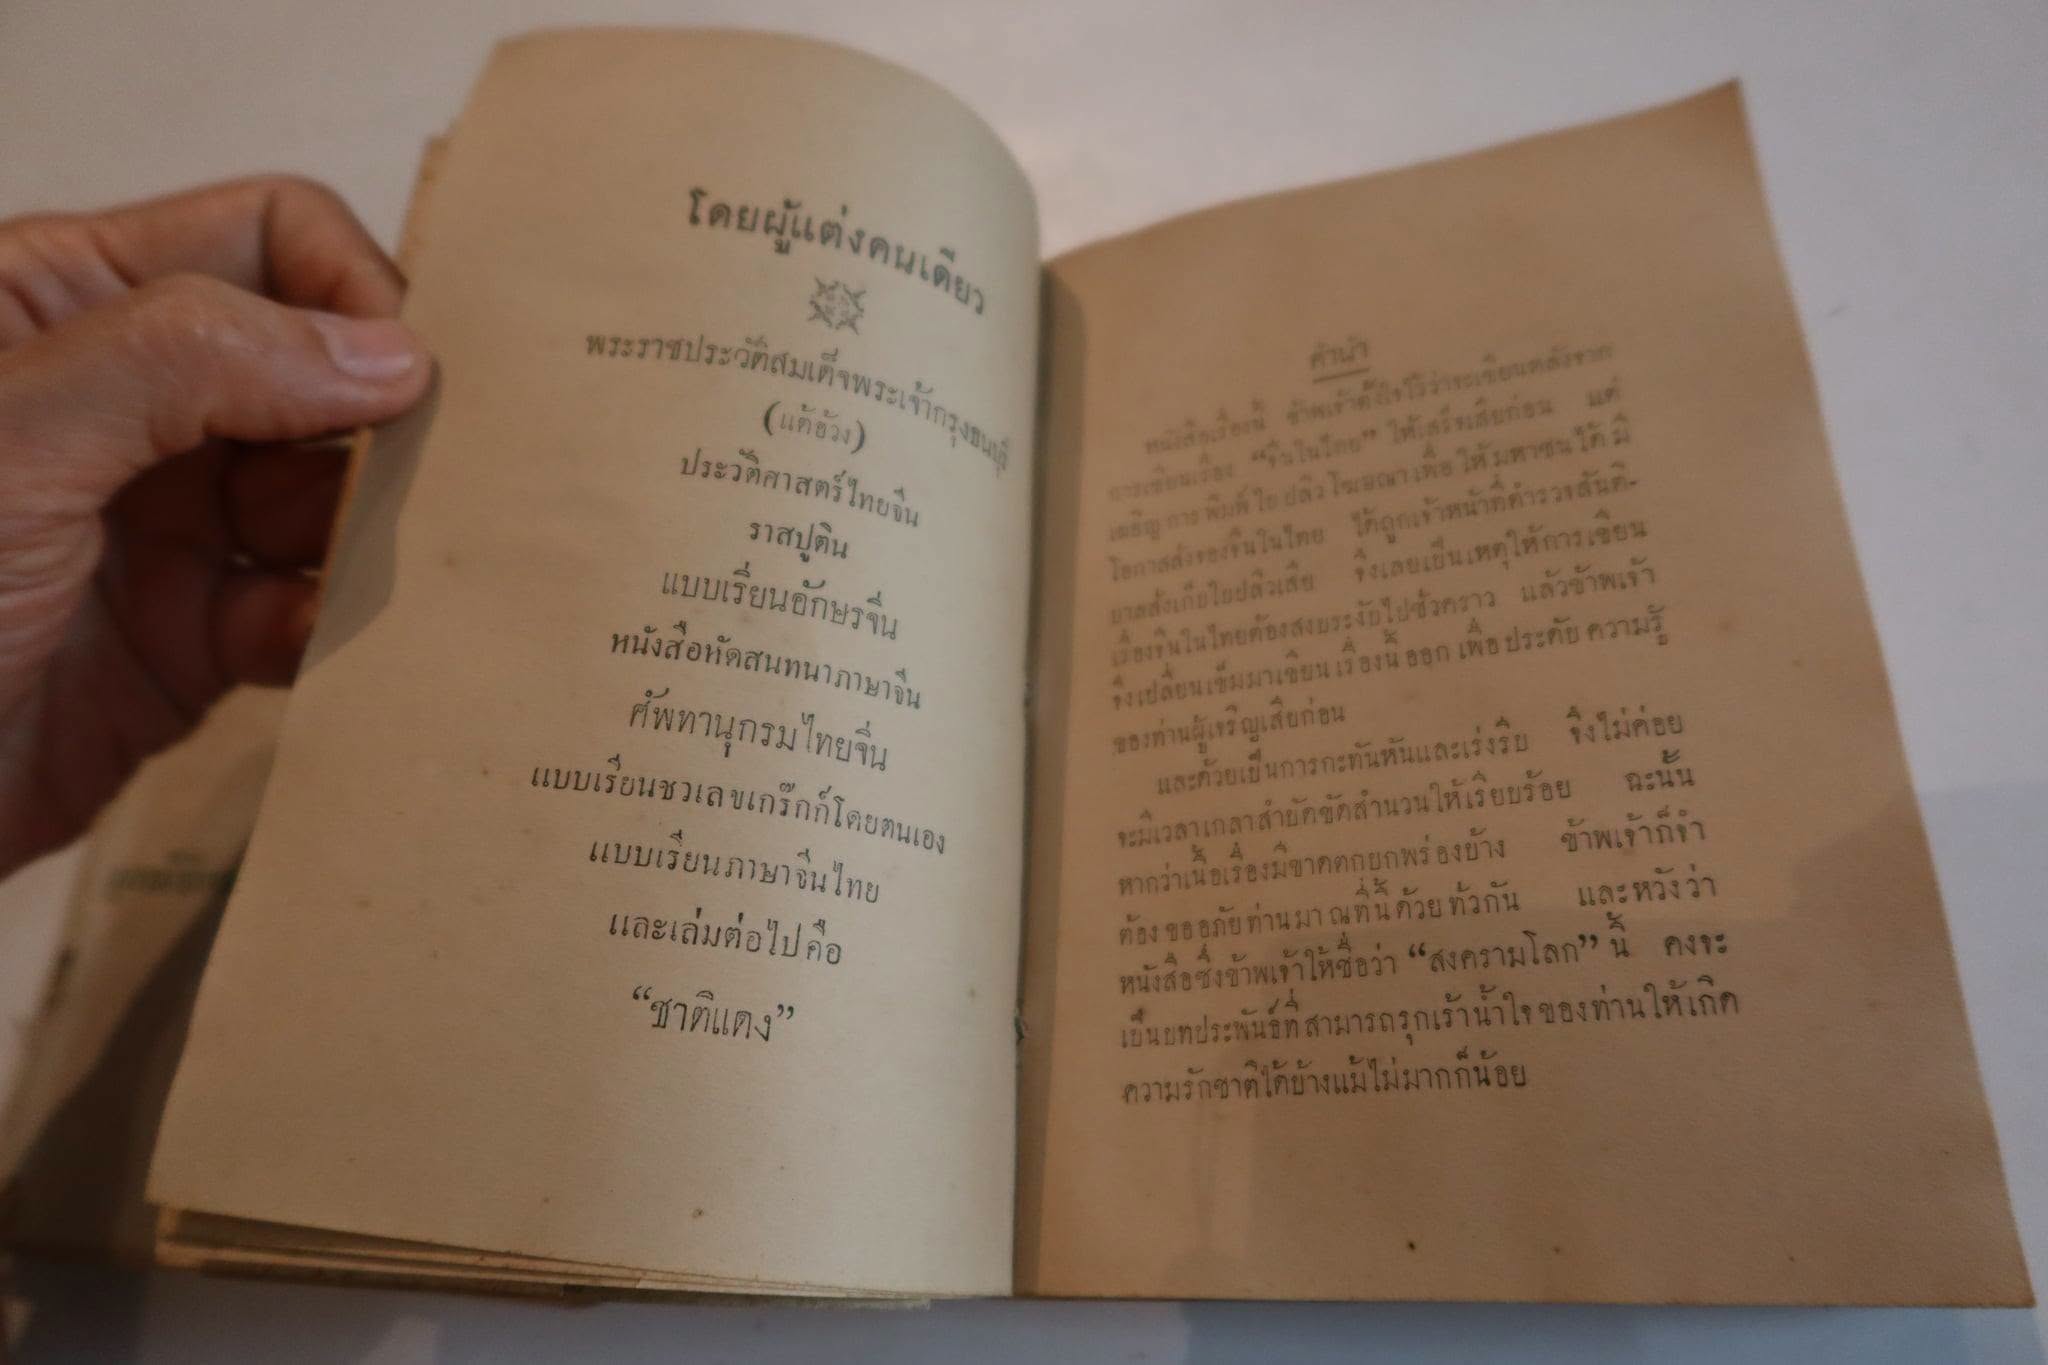 โดยผู้แต่งคนเดียว
พระราชประวัติสมเด็จพระเจ้ากรุงธนบุรี
(แต้อ้วง)
ประวัติศาสตร์ไทยจีน
ราสปูติน
แบบเรี่ยนอักษรจี่น
หนังสือหัดสนทนาภาษาจีน
ศัพทานุกรมไทยจี่น
แบบเรียนชวเลขเกร๊กก์โดยตนเอง
แบบเรียนภาษาจีนไทย
และเล่มต่อไปคือ
“ชาติแดง”
คำนำ
หนังสือเรื่องนี้ ข้าพเจ้าตั้งใจไว้ว่าจะเขียนหลังจาก
การเขียนเรื่อง “จีนในไทย” ให้เสร็จเสียก่อน แต่
เผอิญการพิมพ์ใบปลิวโฆษณาเพื่อให้มหาชนได้มี
โอกาสสั่งจองจีนในไทย ได้ถูกเจ้าหน้าที่ตำรวจสันติ-
บาลสั่งเก็บใบปลิวเสีย จึงเลยเป็นเหตุให้การเขียน
เรื่องจีนในไทยต้องสงบระงับไปชั่วคราว แล้วข้าพเจ้า
จึงเปลี่ยนเข็มมาเขียนเรื่องนี้ออกเพื่อประดับความรู้
ของท่านผู้เจริญเสียก่อน
และด้วยเป็นการกะทันหันและเร่งรีบ จึงไม่ค่อย
จะมีเวลาเกลาสำบัดขัดสำนวนให้เรียบร้อย ฉะนั้น
หากว่าเนื้อเรื่องมีขาดตกบกพร่องบ้าง ข้าพเจ้าก็จำ
ต้องขออภัยท่านมาณที่นี้ด้วยทั่วกัน และหวังว่า
หนังสือซึ่งข้าพเจ้าให้ชื่อว่า “สงครามโลก” นี้ คงจะ
เป็นบทประพันธ์ที่สามารถรุกเร้าน้ำใจของท่านให้เกิด
ความรักชาติได้บ้างแม้ไม่มากก็น้อย